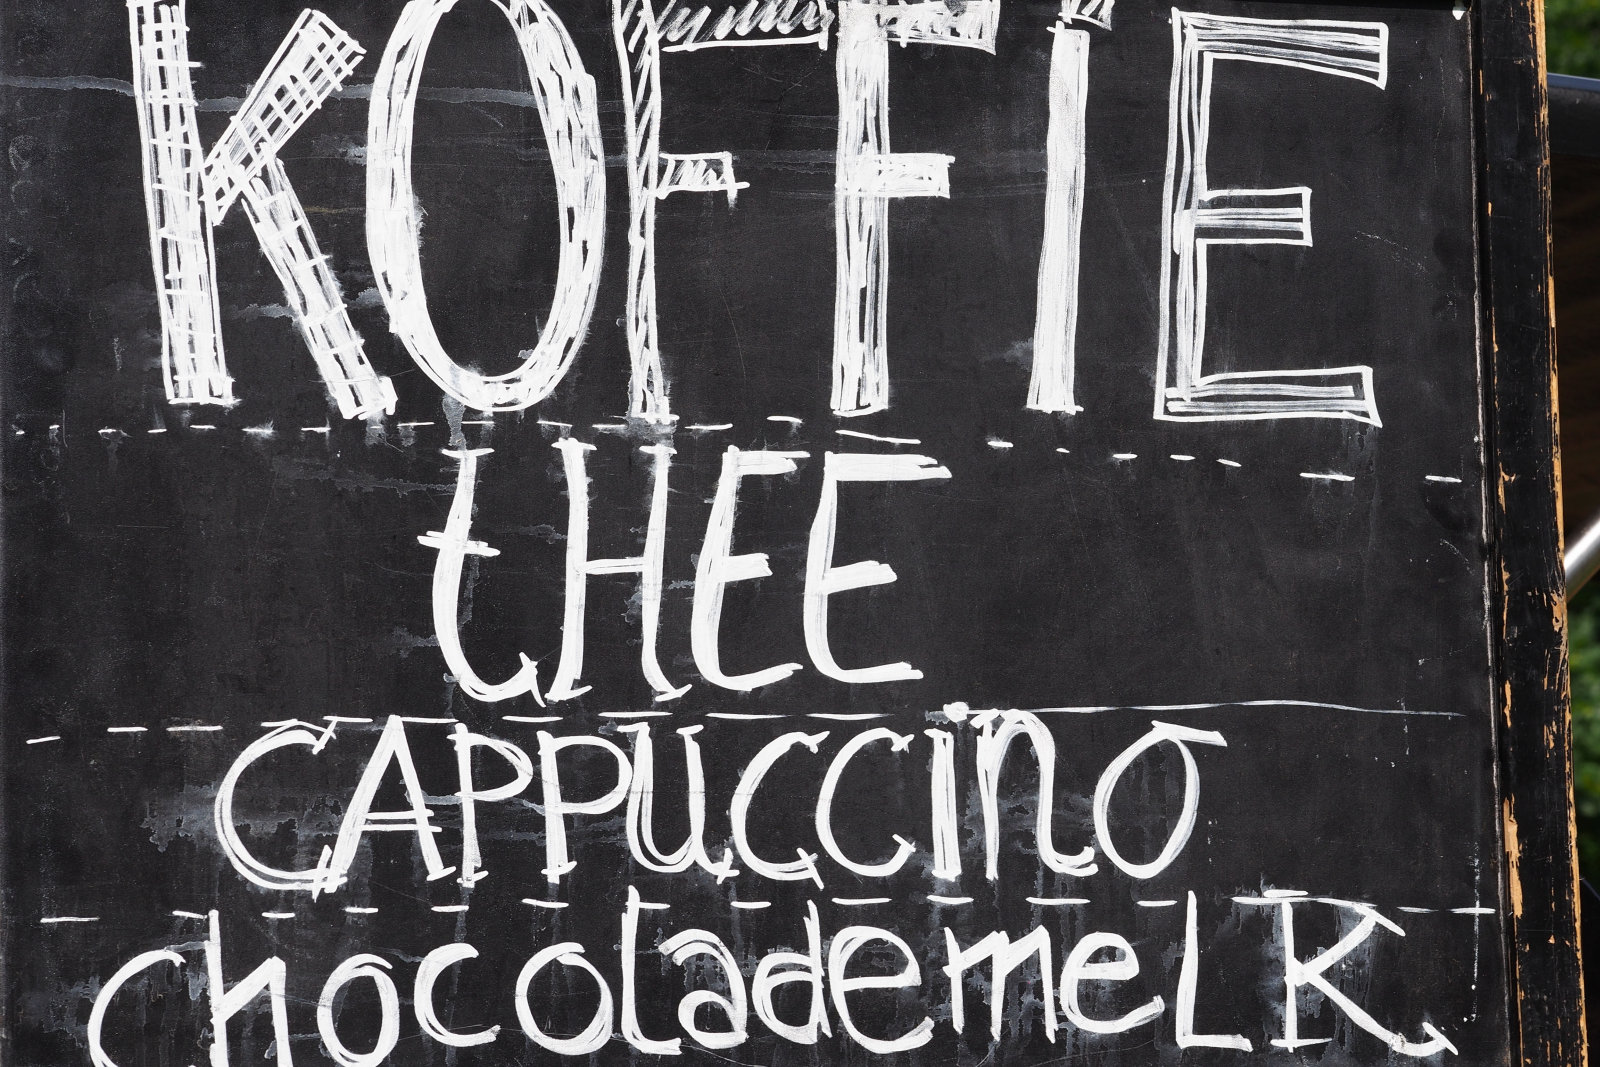 KOFFIE
tHEE
CAPPUCCINO
chocolademeLK